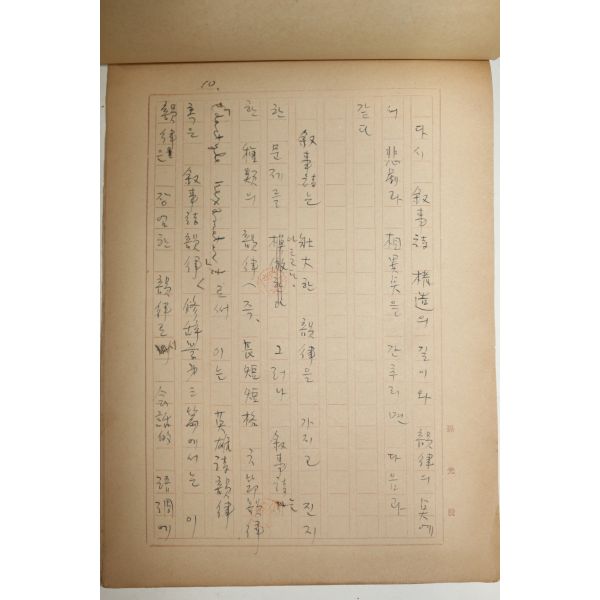 10.
다시 叙事詩 構造의 길이와 韻律의 点에
서 悲劇과 相異点을 간추리면 다음과
같다
叙事詩는 壯大한 韻律을 가지고 진지
한 문제를 模倣 그러나 叙事詩는
한 種類의 韻律(즉, 長短短格 韻律
Hexameter")로써 이는 英雄詩韻律
혹은 叙事詩韻律 <修辞 三篇에서는 이
韻律은 장엄한 韻律로써 会話的 語調에